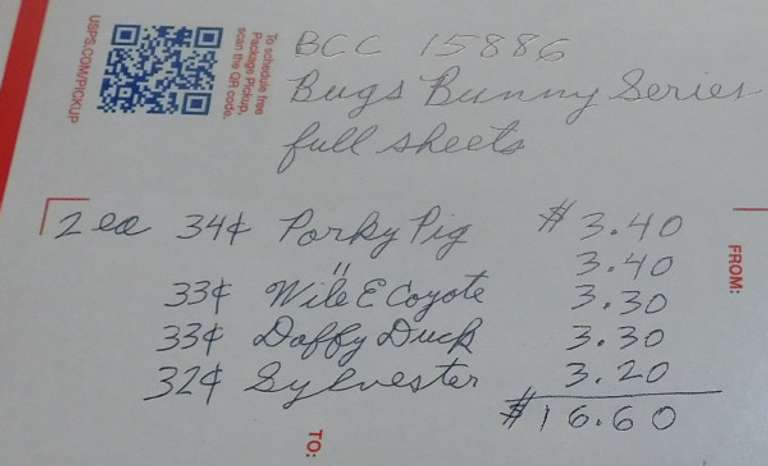 USPS.COM/PICKUP
To schedule free
Package Pickup,
scan the QR code.
BCC 15886
Bugs Bunny Series
full sheets
2 ea 34¢ Porky Pig $3.40
" 3.40
33¢ Wile E Coyote 3.30
33¢ Daffy Duck 3.30
32¢ Sylvester 3.20
$16.60
FROM:
TO: